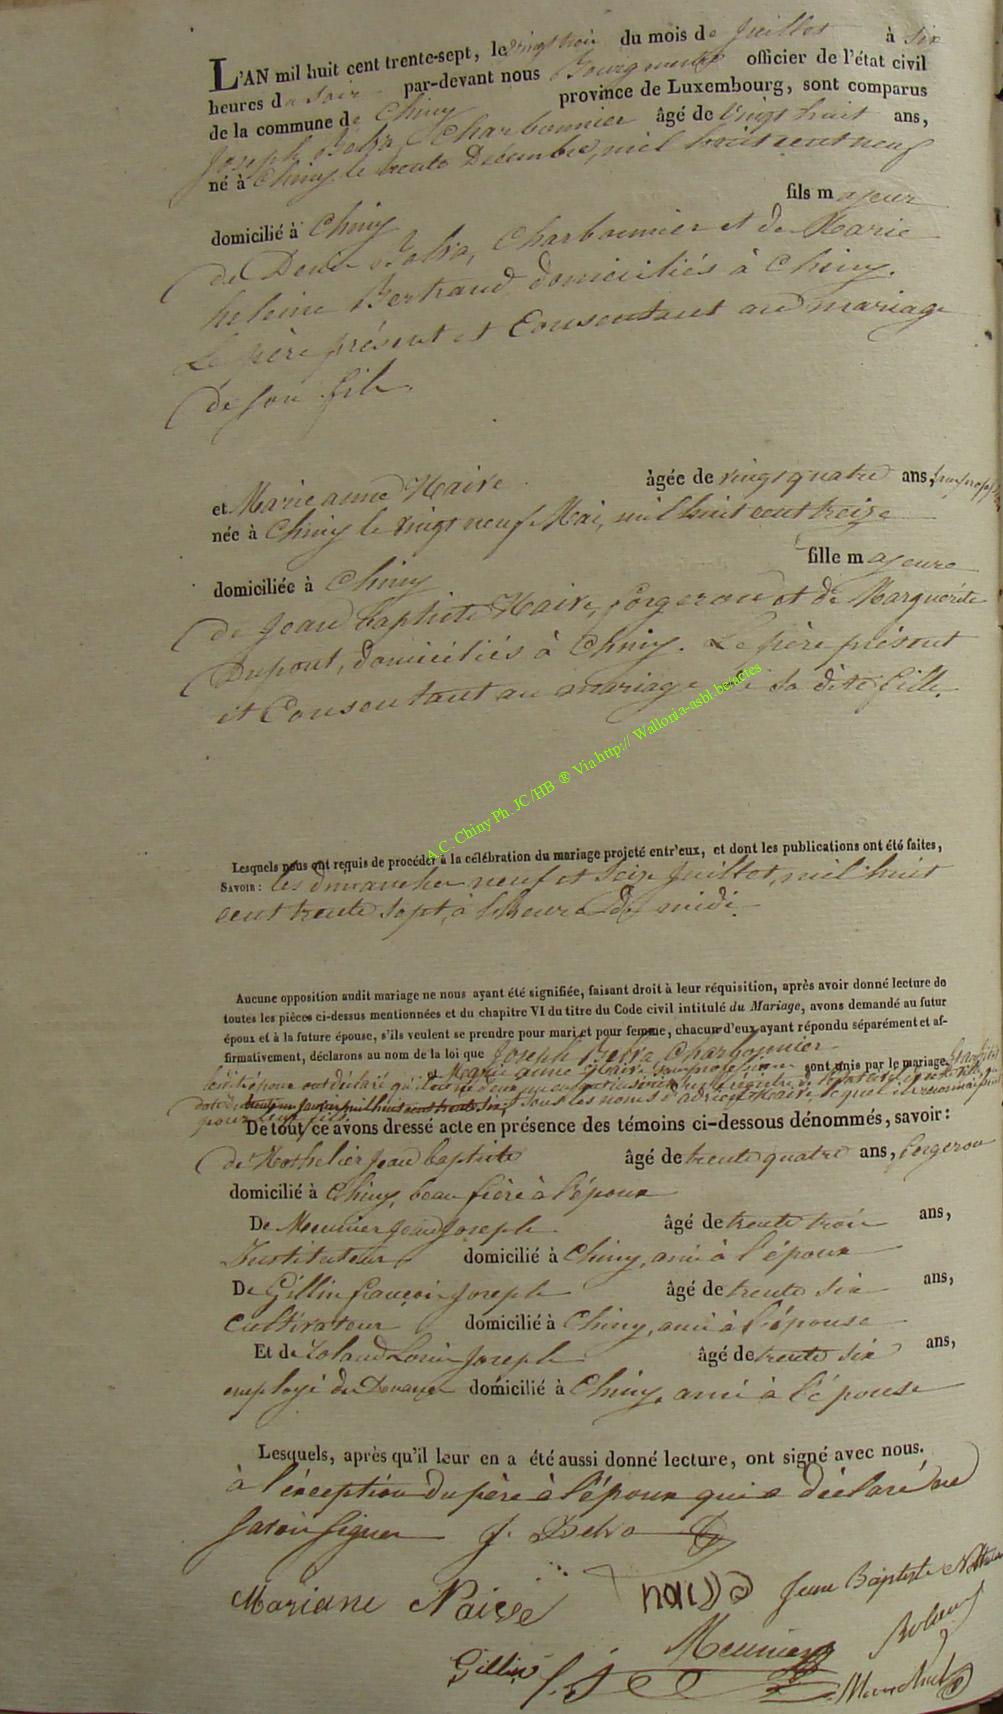 L'AN mil huit cent trente-sept, le vingt trois du mois de Juillet à six
heures du soir par-devant nous Bourgmestre officier de l'état civil
de la commune de Chiny province de Luxembourg, sont comparus
Joseph Charbonnier âgé de vingt huit ans,
né à Chiny le trente Décembre, mil huit cent neuf
fils majeur
domicilié à Chiny
de Denis Charbonnier et de Marie
heleine Bertrand domiciliés à Chiny.
Le père présent et Consentant au mariage
de son fils.
et Marie anne Naisse âgée de vingt quatre ans,
née à Chiny le vingt neuf Mai, mil huit cent treize
fille majeure
domiciliée à Chiny
de Jean baptiste forgeron et de Marguerite
Dupont, domiciliés à Chiny. Le père présent
et Consentant au mariage de sa dite fille.
A.C. Chiny Ph. JC/HB ® Via http:// Wallonia-asbl.be/actes
Lesquels nous ont requis de procéder à la célébration du mariage projeté entr'eux, et dont les publications ont été faites,
SAVOIR : les dimanches neuf et seize Juillet, mil huit
cent trente sept, à l'heure de midi.
Aucune opposition audit mariage ne nous ayant été signifiée, faisant droit à leur réquisition, après avoir donné lecture de
toutes les pièces ci-dessus mentionnées et du chapitre VI du titre du Code civil intitulé du Mariage, avons demandé au futur
époux et à la future épouse, s'ils veulent se prendre pour mari et pour femme, chacun d'eux ayant répondu séparément et af-
firmativement, déclarons au nom de la loi que Joseph Charbonnier
et Marie anne sans profession sont unis par le mariage.
pour leur fils.
De tout ce avons dressé acte en présence des témoins ci-dessous dénommés, savoir :
de Jean baptiste âgé de trente quatre ans, forgeron
domicilié à Chiny, beau frère à l'époux
De Meunier Jean Joseph âgé de trente trois ans,
Instituteur domicilié à Chiny, ami à l'époux
De Gillin françois Joseph âgé de trente six ans,
Cultivateur domicilié à Chiny, ami à l'épouse
Et de Louis Joseph âgé de trente six ans,
employé des Douanes domicilié à Chiny, ami à l'épouse
Lesquels, après qu'il leur en a été aussi donné lecture, ont signé avec nous.
à l'éxception du père à l'époux qui a déclaré ne
savoir signer J.
Mariane Naisse
Jean Baptiste
Meunier
Gillin